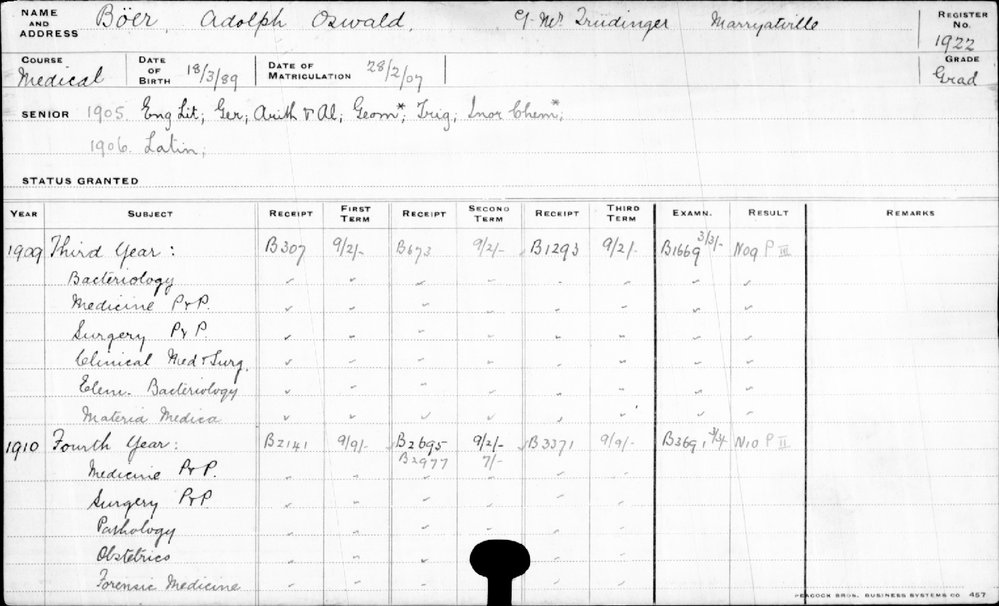 NAME AND ADDRESS Böer, Adolph Oswald, c/- Mr Trüdinger Marryatville REGISTER No. 1922
COURSE Medical DATE OF BIRTH 18/3/89 DATE OF MATRICULATION 28/2/07 GRADE Grad
SENIOR 1905. Eng Lit; Ger; Arith & Al; Geom*; Trig; Inor Chem*;
1906. Latin;
STATUS GRANTED
YEAR SUBJECT RECEIPT FIRST TERM RECEIPT SECOND TERM RECEIPT THIRD TERM EXAMN. RESULT REMARKS
1909 Third Year: B307 9/2/- B673 9/2/- B1293 9/2/- B1669 3/3/- N09 P III
Bacteriology
Medicine P & P.
Surgery P & P.
Clinical Med & Surg.
Elem. Bacteriology
Materia Medica
1910 Fourth Year: B2141 9/9/- B2695 9/2/- B3371 9/9/- B3691 N10 P II
B2977 7/-
Medicine P & P.
Surgery P & P
Pathology
Obstetrics
Forensic Medicine
PEACOCK BROS. BUSINESS SYSTEMS CO. 457